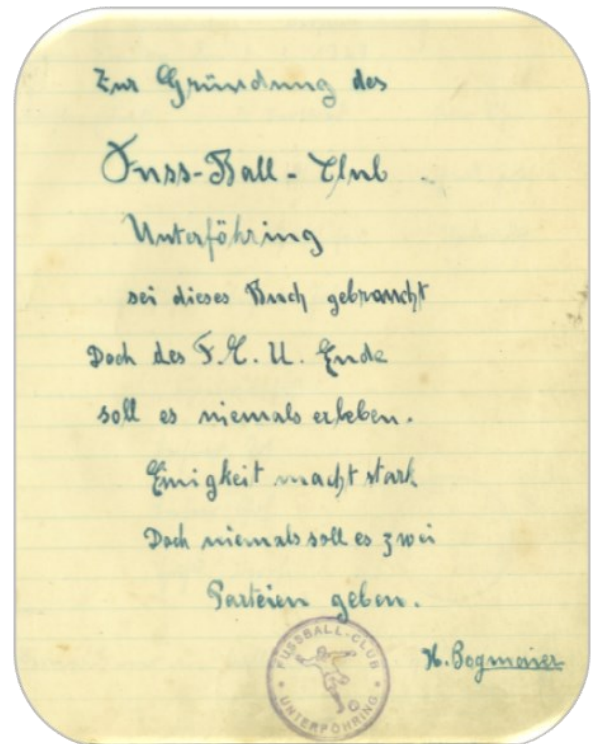 Zur Gründung des
Fuss-Ball-Club
Unterföhring
sei dieses Buch gebraucht
Doch des F.C.U. Ende
soll es niemals erleben.
Einigkeit macht stark
Doch niemals soll es zwei
Parteien geben.
H. Pogmeier
FUSSBALL-CLUB
UNTERFÖHRING